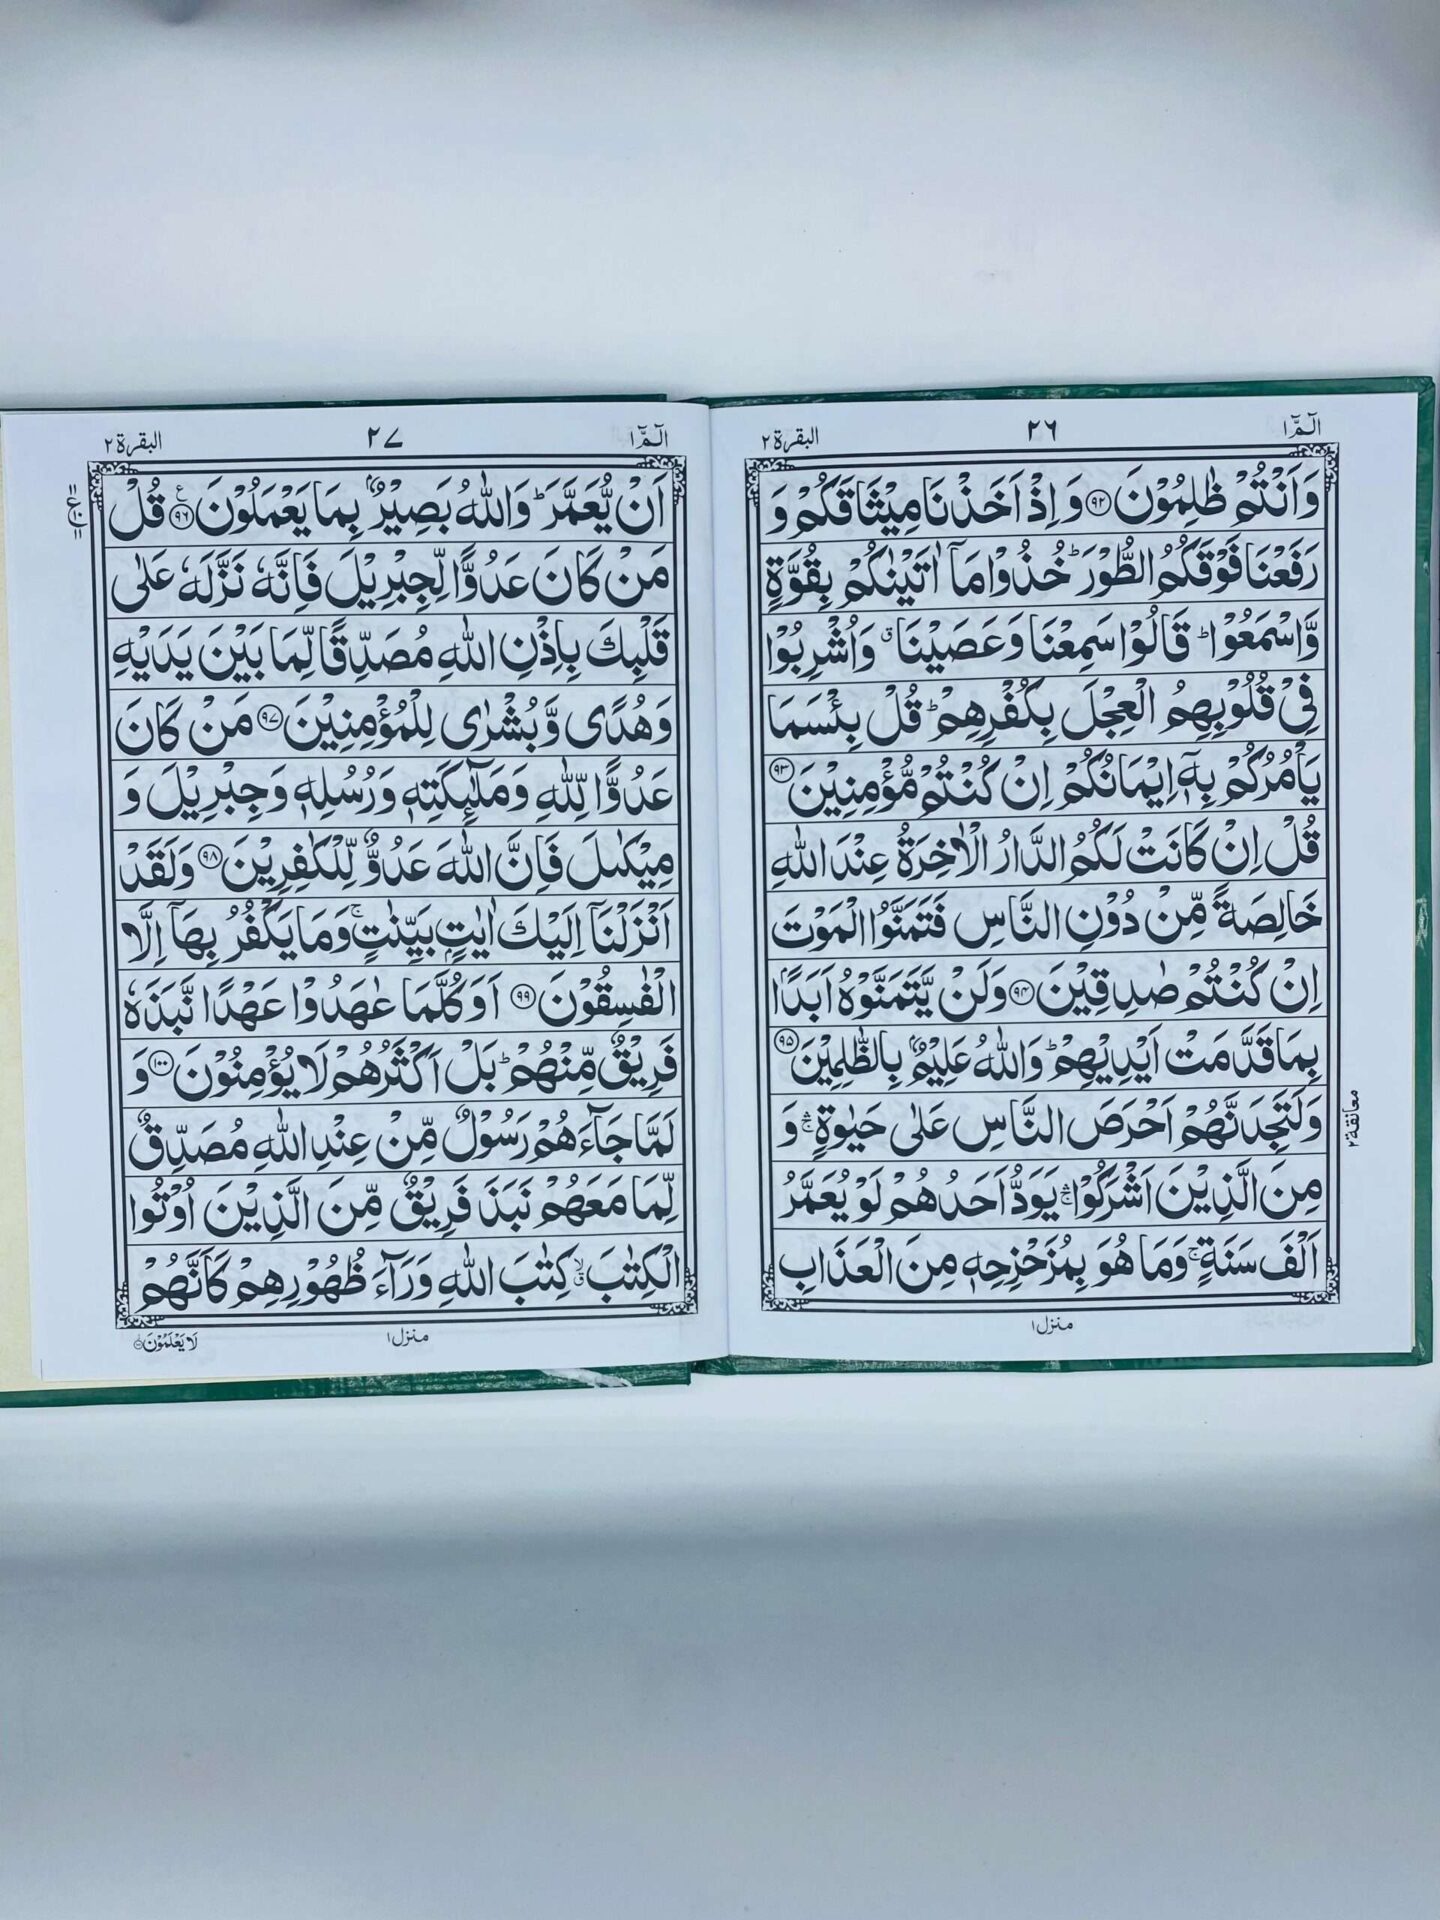 الٓمّٓ ١
٢٦
البقرة ٢
وَاَنْتُمْ ظٰلِمُوْنَ ﴿٩٢﴾ وَاِذْ اَخَذْنَا مِيْثَاقَكُمْ وَ
رَفَعْنَا فَوْقَكُمُ الطُّوْرَ ؕ خُذُوْا مَاۤ اٰتَيْنٰكُمْ بِقُوَّةٍ
وَّاسْمَعُوْا ؕ قَالُوْا سَمِعْنَا وَعَصَيْنَا ۗ وَاُشْرِبُوْا
فِيْ قُلُوْبِهِمُ الْعِجْلَ بِكُفْرِهِمْ ؕ قُلْ بِئْسَمَا
يَاْمُرُكُمْ بِهٖۤ اِيْمَانُكُمْ اِنْ كُنْتُمْ مُّؤْمِنِيْنَ ﴿٩٣﴾
قُلْ اِنْ كَانَتْ لَكُمُ الدَّارُ الْاٰخِرَةُ عِنْدَ اللّٰهِ
خَالِصَةً مِّنْ دُوْنِ النَّاسِ فَتَمَنَّوُا الْمَوْتَ
اِنْ كُنْتُمْ صٰدِقِيْنَ ﴿٩٤﴾ وَلَنْ يَّتَمَنَّوْهُ اَبَدًۢا
بِمَا قَدَّمَتْ اَيْدِيْهِمْ ؕ وَاللّٰهُ عَلِيْمٌۢ بِالظّٰلِمِيْنَ ﴿٩٥﴾
وَلَتَجِدَنَّهُمْ اَحْرَصَ النَّاسِ عَلٰى حَيٰوةٍ ۛۚ وَ
مِنَ الَّذِيْنَ اَشْرَكُوْا ۛۚ يَوَدُّ اَحَدُهُمْ لَوْ يُعَمَّرُ
اَلْفَ سَنَةٍ ۚ وَمَا هُوَ بِمُزَحْزِحِهٖ مِنَ الْعَذَابِ
معانقة ٢
منزل ١
الٓمّٓ ١
٢٧
البقرة ٢
اَنْ يُّعَمَّرَ ؕ وَاللّٰهُ بَصِيْرٌۢ بِمَا يَعْمَلُوْنَ ﴿٩٦﴾ قُلْ
مَنْ كَانَ عَدُوًّا لِّجِبْرِيْلَ فَاِنَّهٗ نَزَّلَهٗ عَلٰى
قَلْبِكَ بِاِذْنِ اللّٰهِ مُصَدِّقًا لِّمَا بَيْنَ يَدَيْهِ
وَهُدًى وَّبُشْرٰى لِلْمُؤْمِنِيْنَ ﴿٩٧﴾ مَنْ كَانَ
عَدُوًّا لِّلّٰهِ وَمَلٰٓئِكَتِهٖ وَرُسُلِهٖ وَجِبْرِيْلَ وَ
مِيْكٰىلَ فَاِنَّ اللّٰهَ عَدُوٌّ لِّلْكٰفِرِيْنَ ﴿٩٨﴾ وَلَقَدْ
اَنْزَلْنَاۤ اِلَيْكَ اٰيٰتٍۭ بَيِّنٰتٍ ۚ وَمَا يَكْفُرُ بِهَاۤ اِلَّا
الْفٰسِقُوْنَ ﴿٩٩﴾ اَوَكُلَّمَا عٰهَدُوْا عَهْدًا نَّبَذَهٗ
فَرِيْقٌ مِّنْهُمْ ؕ بَلْ اَكْثَرُهُمْ لَا يُؤْمِنُوْنَ ﴿١٠٠﴾ وَ
لَمَّا جَآءَهُمْ رَسُوْلٌ مِّنْ عِنْدِ اللّٰهِ مُصَدِّقٌ
لِّمَا مَعَهُمْ نَبَذَ فَرِيْقٌ مِّنَ الَّذِيْنَ اُوْتُوا
الْكِتٰبَ ۙۗ كِتٰبَ اللّٰهِ وَرَآءَ ظُهُوْرِهِمْ كَاَنَّهُمْ
منزل ١
لَا يَعْلَمُوْنَ